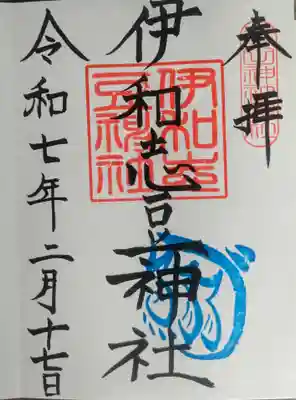 奉拝
伊和志豆神社
令和七年二月十七日
伊和志
豆神社